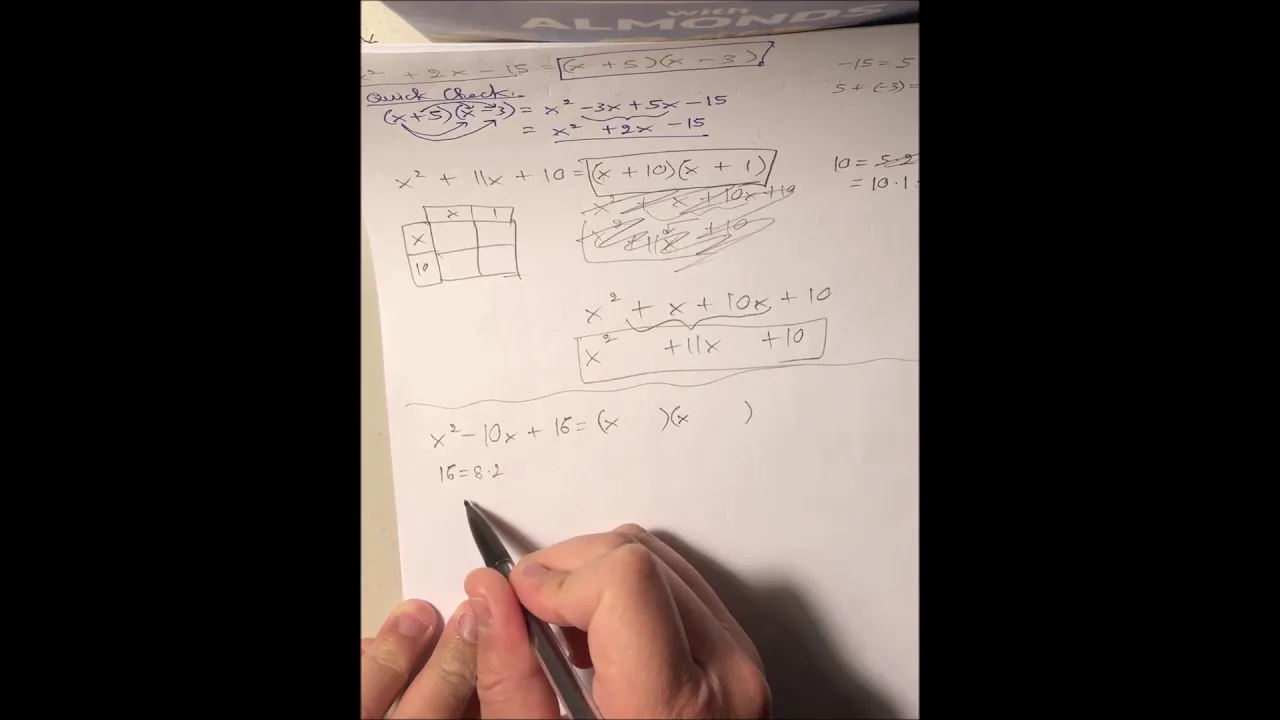 with
ALMONDS
x² + 2x - 15 = (x + 5)(x - 3)
-15 = 5
Quick Check:
5 + (-3) =
(x + 5)(x - 3) = x² - 3x + 5x - 15
= x² + 2x - 15
x² + 11x + 10 = (x + 10)(x + 1)
10 = 5·2
= 10·1
x² + x + 10x + 10
x² + 11x + 10
x 1
x
10
x² + x + 10x + 10
x² + 11x + 10
x² - 10x + 16 = (x )(x )
16 = 8·2